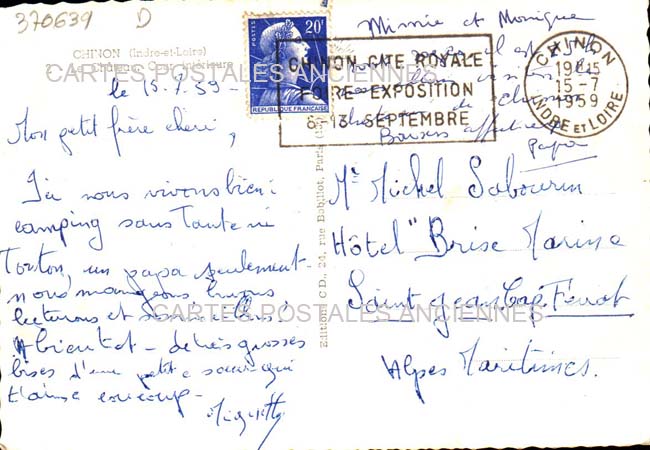 370639 D
CHINON (Indre-et-Loire)
2 - Le Château - Cour intérieure
CARTES POSTALES ANCIENNES
le 15.7.59 -
Mon petit frère chéri,
Ici nous vivons bien :
camping sans Tante ni
Tonton, un papa seulement -
nous mangeons, buvons
lecturons et
A bientôt - de très grosses
bises d'une petite soeur qui
t'aime
POSTES
20F
REPUBLIQUE FRANÇAISE
CHINON CITE ROYALE
FOIRE-EXPOSITION
8-13 SEPTEMBRE
CHINON
15-7
1959
INDRE et LOIRE
Mimie et Monique
il est
Baisers affectueux
Papa
Edition C D., 24, rue Bobillot, Paris
Mr Michel Sabourin
Hôtel "Brise Marine
Saint Jean Cap Ferrat
Alpes Maritimes.
CARTES POSTALES ANCIENNES